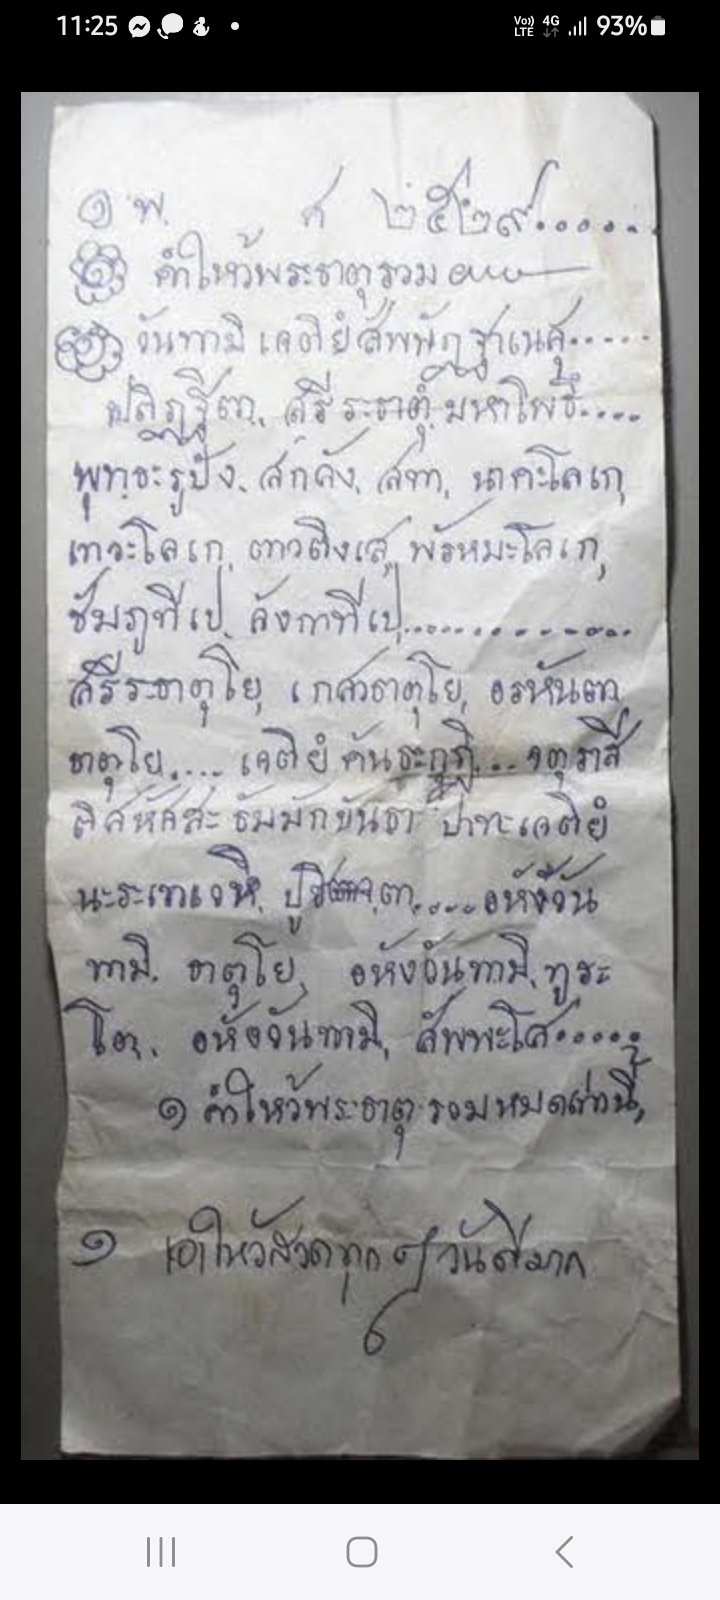 11:25 Vo)) LTE 4G 93%
๑ พ. ศ ๒๕๒๙......
๑ คำไหว้พระธาตุรวม
๑ วันทามิ เจติยํ สัพพัฏฐาเนสุ.....
ปติฏฐิตา, สรีระธาตุํ มหาโพธิํ....
พุทธะรูปัง, สกลัง, สทา, นาคะโลเก,
เทวะโลเก, ตาวติงเส, พรัหมะโลเก,
ชัมภูทีเป, ลังกาทีเป,..............
สรีระธาตุโย, เกสาธาตุโย, อรหันตา,
ธาตุโย.... เจติยํ คันธะกุฎิ... จตุราสี
ติสหัสสะ ธัมมักขันธา ปาทะเจติยํ
นะระเทเวหิ, ปูชิตา.... อหังวัน
ทามิ. ธาตุโย, อหังวันทามิ, ทูระ
โต, อหังวันทามิ, สัพพะโส......
๑ คำไหว้พระธาตุ รวมหมดเท่านี้,
๑ เอาไหว้สวดทุก ๆ วันดีมาก